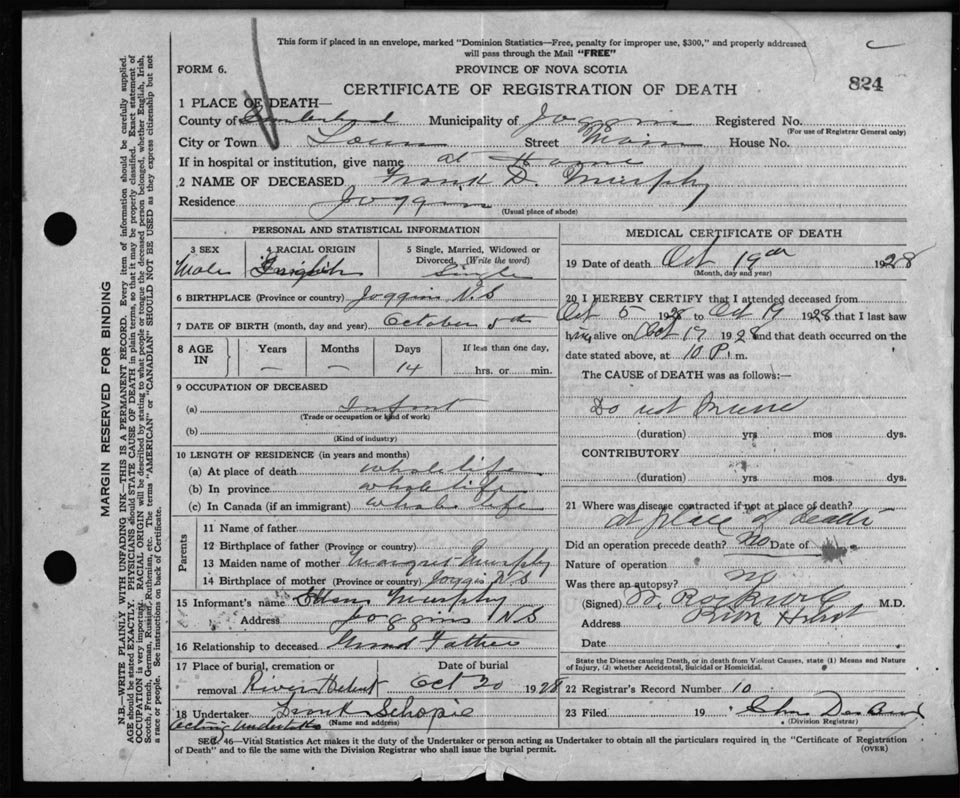 This form if placed in an envelope, marked "Dominion Statistics—Free, penalty for improper use, $300," and properly addressed
will pass through the Mail "FREE"
FORM 6. PROVINCE OF NOVA SCOTIA
CERTIFICATE OF REGISTRATION OF DEATH 824
1 PLACE OF DEATH—
County of Cumberland Municipality of Joggins Registered No.
(For use of Registrar General only)
City or Town Town Street Main House No.
If in hospital or institution, give name at Home
2 NAME OF DECEASED Frank D. Murphy
Residence Joggins
(Usual place of abode)
PERSONAL AND STATISTICAL INFORMATION
3 SEX 4 RACIAL ORIGIN 5 Single, Married, Widowed or
Divorced. (Write the word)
Male English Single
6 BIRTHPLACE (Province or country) Joggins N.S
7 DATE OF BIRTH (month, day and year) October 5th
8 AGE IN Years Months Days If less than one day,
— — 14 hrs. or min.
9 OCCUPATION OF DECEASED
(a) Infant
(Trade or occupation or kind of work)
(b)
(Kind of industry)
10 LENGTH OF RESIDENCE (in years and months)
(a) At place of death whole life
(b) In province whole life
(c) In Canada (if an immigrant) whole life
Parents
11 Name of father
12 Birthplace of father (Province or country)
13 Maiden name of mother Margret Murphy
14 Birthplace of mother (Province or country) Joggins N.S
15 Informant's name Murphy
Address Joggins N S
16 Relationship to deceased Grand Father
17 Place of burial, cremation or Date of burial
removal River Hebert Oct 20 1928
18 Undertaker Frank Schopie
(Name and address)
Acting Undertaker
MEDICAL CERTIFICATE OF DEATH
19 Date of death Oct 19th 1928
(Month, day and year)
20 I HEREBY CERTIFY that I attended deceased from
Oct 5 1928 to Oct 19 1928 that I last saw
him alive on Oct 17 1928 and that death occurred on the
date stated above, at 10 P. m.
The CAUSE of DEATH was as follows:—
Do not
(duration) yrs mos dys.
CONTRIBUTORY
(duration) yrs. mos dys.
21 Where was disease contracted if not at place of death?
at place of death
Did an operation precede death? No Date of
Nature of operation
Was there an autopsy? no
(Signed) Rockwell M.D.
Address River Hebert
Date
State the Disease causing Death, or in death from Violent Causes, state (1) Means and Nature
of Injury, (2) whether Accidental, Suicidal or Homicidal.
22 Registrar's Record Number 10
23 Filed 19
(Division Registrar)
SEC. 46—Vital Statistics Act makes it the duty of the Undertaker or person acting as Undertaker to obtain all the particulars required in the "Certificate of Registration
of Death" and to file the same with the Division Registrar who shall issue the burial permit. (OVER)
MARGIN RESERVED FOR BINDING
N.B.—WRITE PLAINLY WITH UNFADING INK—THIS IS A PERMANENT RECORD. Every item of information should be carefully supplied.
AGE should be stated EXACTLY. PHYSICIANS should STATE CAUSE OF DEATH in plain terms, so that it may be properly classified. Exact statement of
OCCUPATION is very important. RACIAL ORIGIN will be described by stating to what people or tongue the deceased person belonged, whether English, Irish,
Scotch, French, German, Russian, Ruthenian, etc. The terms "AMERICAN" or "CANADIAN" SHOULD NOT BE USED as they express citizenship but not
a race or people. See instructions on back of Certificate.